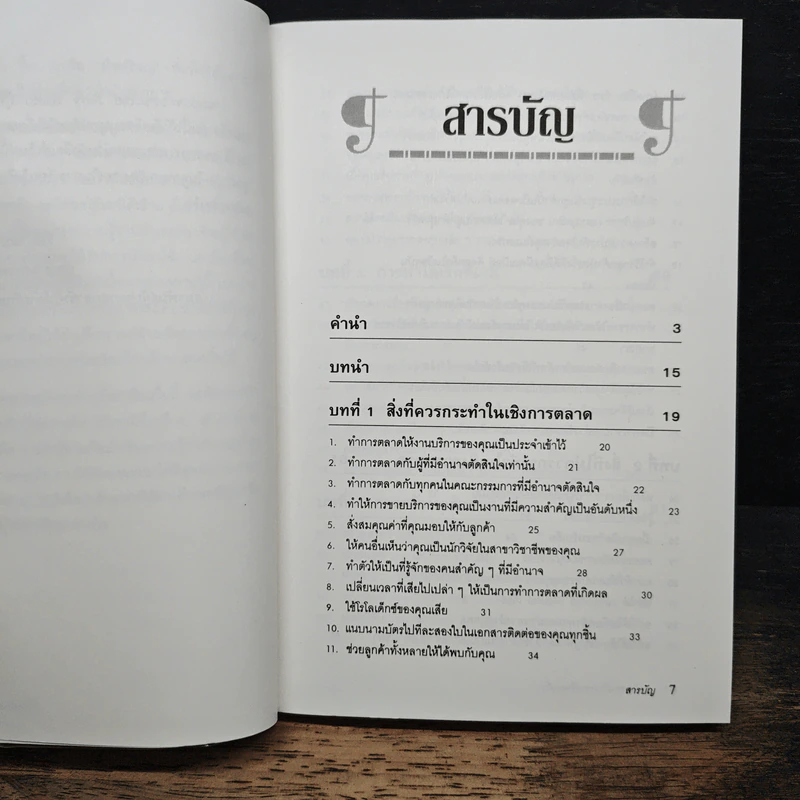 สารบัญ
คำนำ 3
บทนำ 15
บทที่ 1 สิ่งที่ควรกระทำในเชิงการตลาด 19
1. ทำการตลาดให้งานบริการของคุณเป็นประจำเข้าไว้ 20
2. ทำการตลาดกับผู้ที่มีอำนาจตัดสินใจเท่านั้น 21
3. ทำการตลาดกับทุกคนในคณะกรรมการที่มีอำนาจตัดสินใจ 22
4. ทำให้การขายบริการของคุณเป็นงานที่มีความสำคัญเป็นอันดับหนึ่ง 23
5. สั่งสมคุณค่าที่คุณมอบให้กับลูกค้า 25
6. ให้คนอื่นเห็นว่าคุณเป็นนักวิจัยในสาขาวิชาชีพของคุณ 27
7. ทำตัวให้เป็นที่รู้จักของคนสำคัญ ๆ ที่มีอำนาจ 28
8. เปลี่ยนเวลาที่เสียไปเปล่า ๆ ให้เป็นการทำการตลาดที่เกิดผล 30
9. ใช้โรโลเด็กซ์ของคุณเสีย 31
10. แนบนามบัตรไปทีละสองใบในเอกสารติดต่อของคุณทุกชิ้น 33
11. ช่วยลูกค้าทั้งหลายให้ได้พบกับคุณ 34
สารบัญ 7